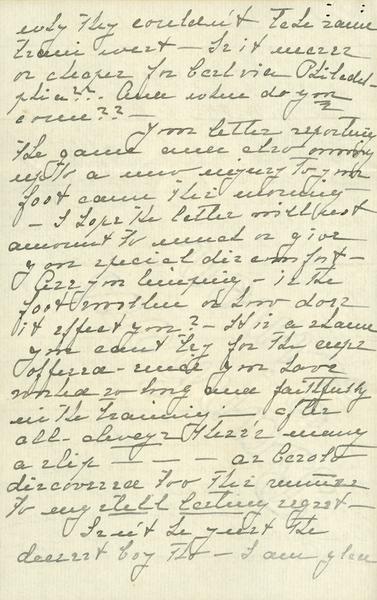 why they couldn't take same
train west — Is it nearer
or cheaper for Earl via Philadel-
phia?? And when do you
come?? —
Your letter reporting
the game and also
up to a new injury to your
foot came this morning
— I hope the latter will not
amount to much or give
you special discomfort —
Are you limping — is the
foot swollen or how does
it effect you? — It is a shame
you can't try for the cups
offered — since you have
worked so long and faithfully
in the training — after
all — always there's many
a slip — — — as Carol
discovered too this summer
to my still lasting regret —
Isn't he just the
dearest boy tho — I am glad